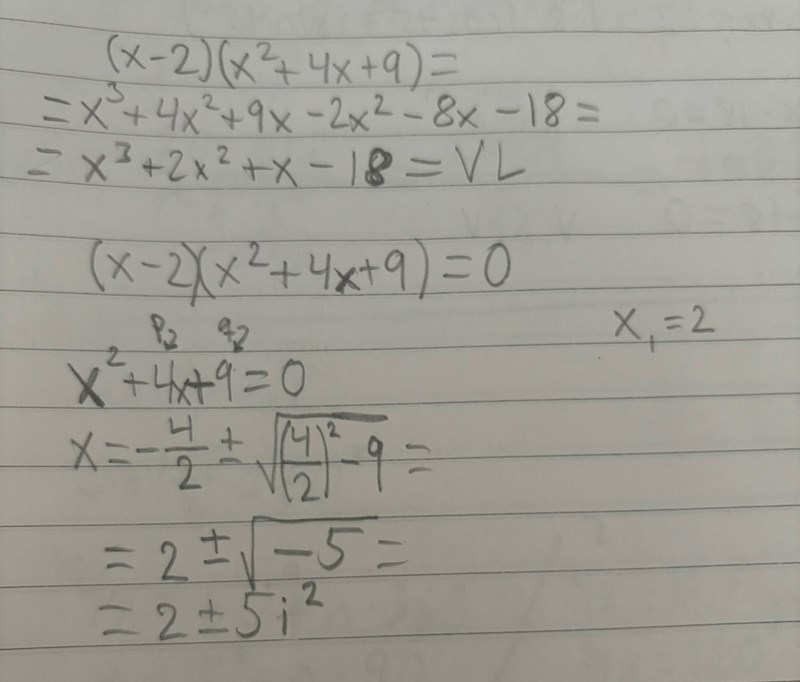 (x-2)(x²+4x+9)=
=x³+4x²+9x-2x²-8x-18=
=x³+2x²+x-18=VL
(x-2)(x²+4x+9)=0
x₁=2
x²+4x+9=0
x=-4/2±√((4/2)²-9)=
=2±√-5=
=2±5i²